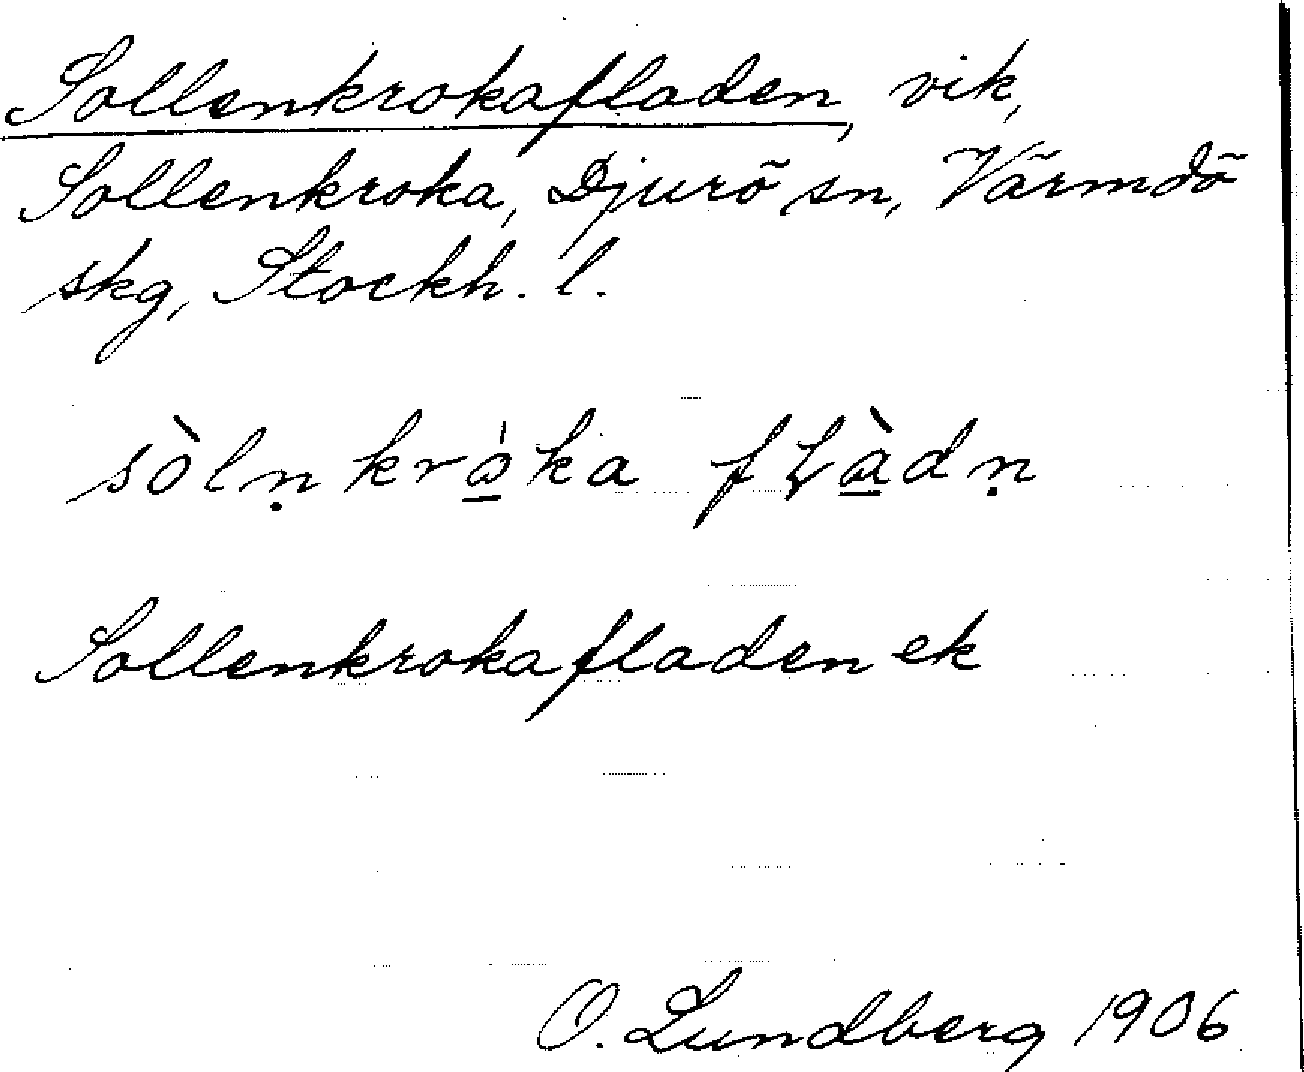 Sollenkrokafladen, vik,
Sollenkroka, Djurö sn, Värmdö
skg, Stockh. l.
sòlṇ kró̱ka fɫà̱dṇ
Sollenkrokafladen ek
O. Lundberg 1906